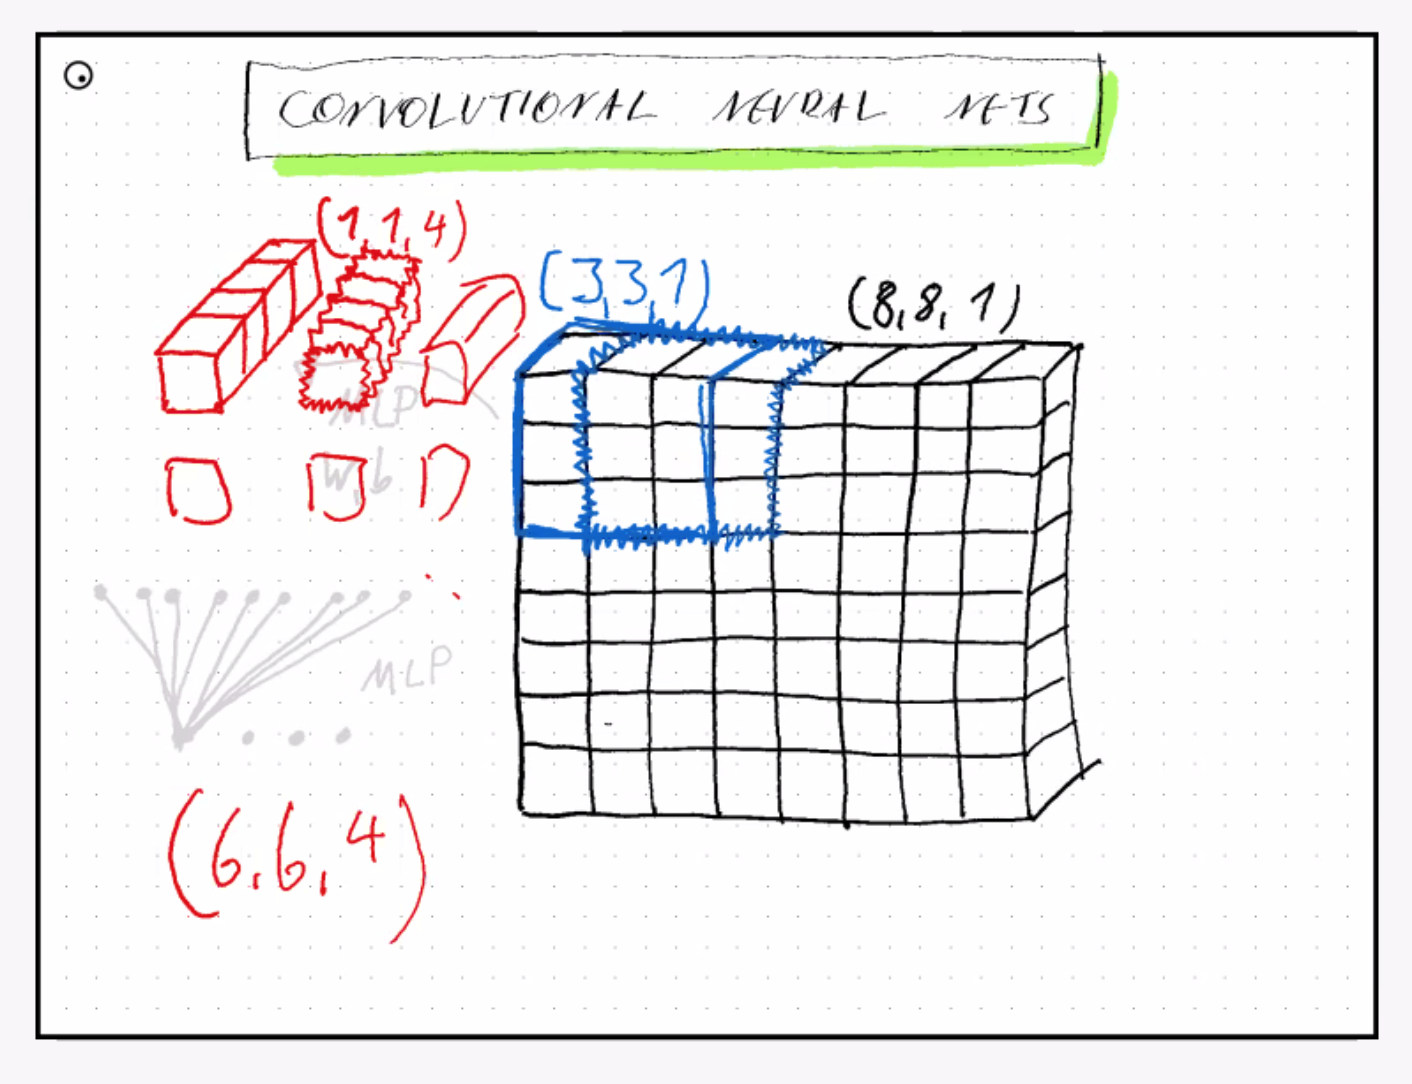 CONVOLUTIONAL NEURAL NETS
(1,1,4)
(3,3,1)
(8,8,1)
MLP
W,b
MLP
(6,6,4)